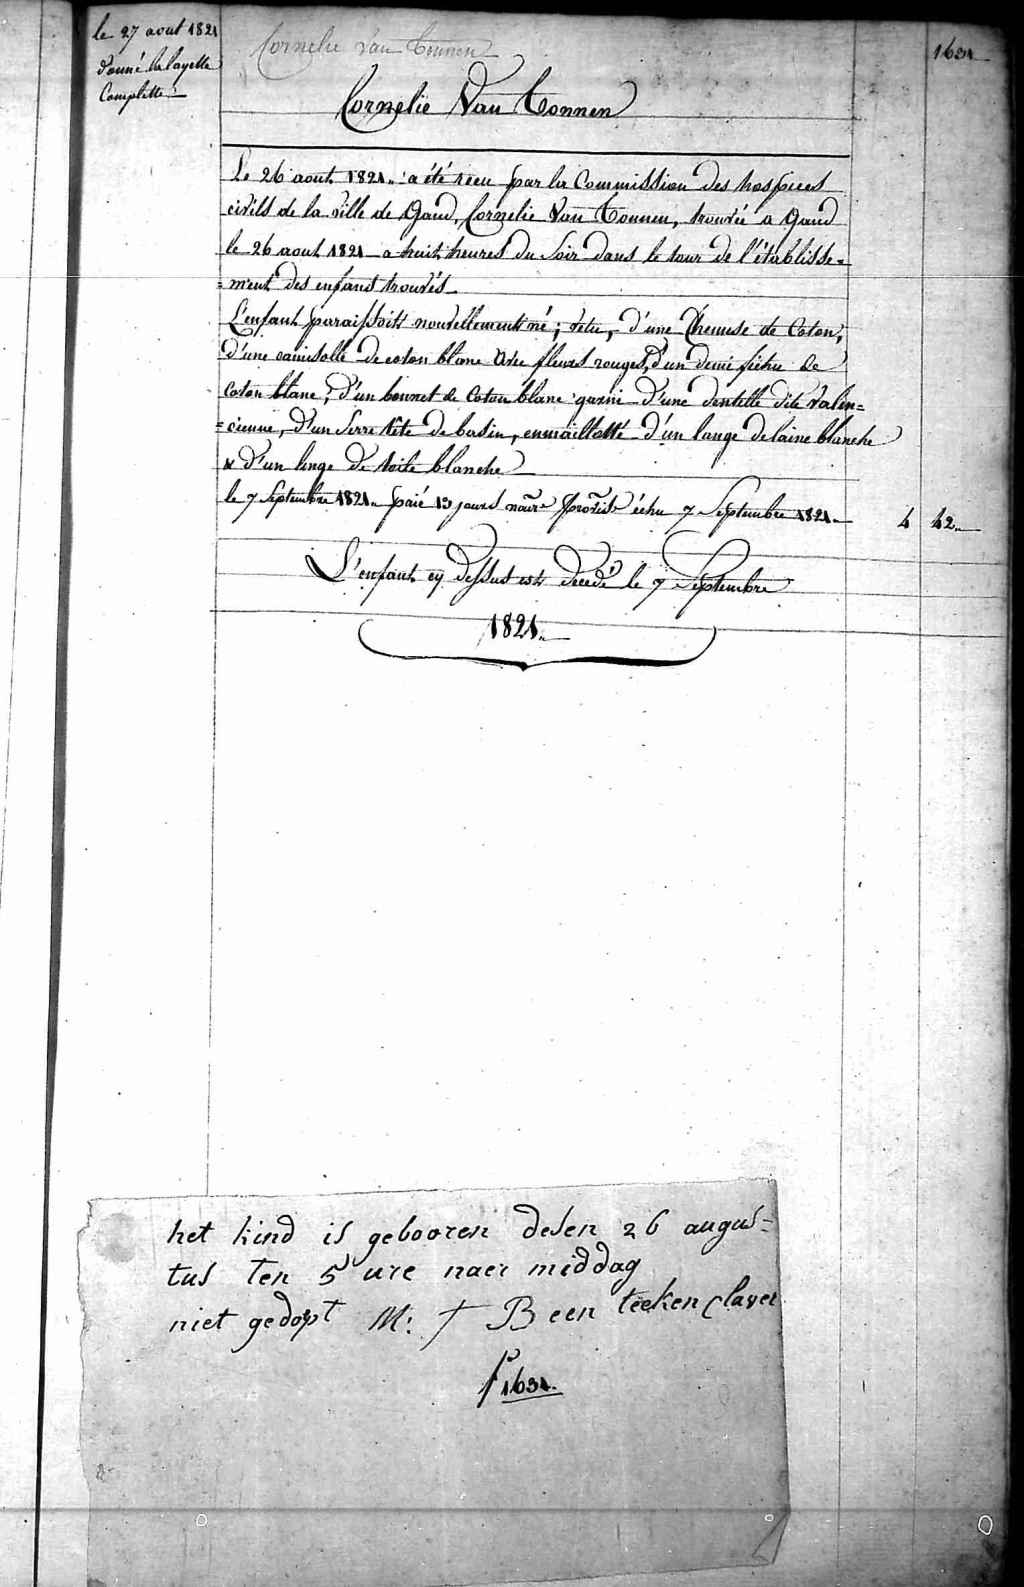 le 27 aout 1821
donné la layette
Complette
Cornelie Van Tonnen
1631
Cornelie Van Tonnen
Le 26 aout 1821. a été recu par la Commission des hospices
civils de la ville de Gand, Cornelie Van Tonnen, trouvée a Gand
le 26 aout 1821 a huit heures du Soir dans le tour de l'établisse=
=ment des enfans trouvés
L'enfant paraissoit nouvellement né; vetu, d'une Chemise de Coton,
d'une camisolle de coton blanc avec fleurs rouges, d'un demi fichu de
Coton blanc, d'un bonnet de Coton blanc garni d'une dentelle dite Valen=
=cienne, d'un Serre tête de basin, enmaillotté d'un lange de laine blanche
& d'un linge de toile blanche
le 7 Septembre 1821. paié 13 jours échu 7 Septembre 1821. 4 42
L'enfant cy dessus est decedé le 7 Septembre
1821.
het kind is gebooren desen 26 augus=
tus ten 5 ure naer middag
niet gedopt M: † B een teeken claver
f° 1631.